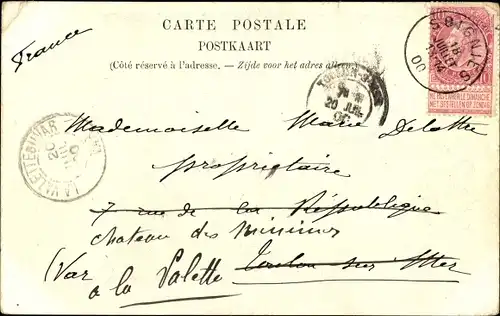 France
CARTE POSTALE
POSTKAART
(Côté réservé à l'adresse. – Zijde voor het adres alleen.)
SOIGNIES
18
JUIL
00
NE PAS LIVRER LE DIMANCHE
NIET BESTELLEN OP ZONDAG
20 JUIL
LA VALETTE-DU-VAR
Mademoiselle Marie Delattre
propriétaire
7 rue de la République
chateau des Minimes
(Var Toulon sur Mer
a la Valette